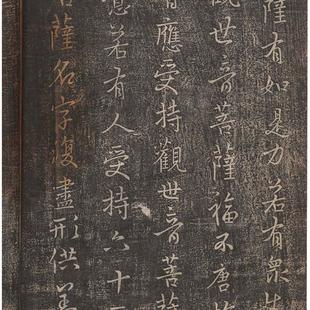 薩有如是力若有衆生
世音菩薩福不唐
應受持觀世音菩薩
若有人受持六十
薩名字復盡形供養